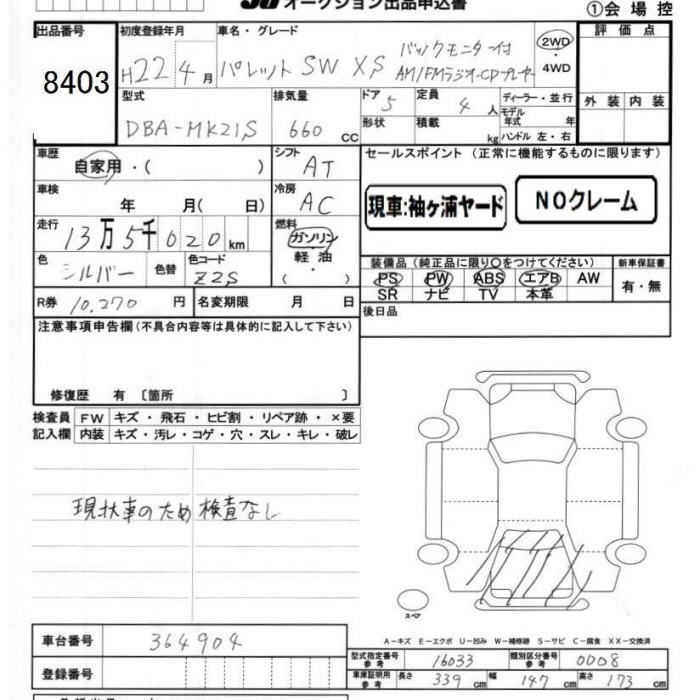 オークション出品申込書
①会場控
出品番号
8403
初度登録年月
H22 4月
車名・グレード
パレットSW XS
バックモニター付
AM/FMラジオ・CDプレーヤー
2WD・4WD
評価点
外装 内装
型式
DBA-MK21S
排気量
660 cc
ドア 5
形状
定員 4 人
積載 kg
ディーラー・並行
モデル年式 年
ハンドル 左・右
車歴
自家用・( )
シフト
AT
セールスポイント (正常に機能するものに限ります)
現車:袖ヶ浦ヤード
NOクレーム
車検
年 月( 日)
冷房
AC
走行
13万5千020km
燃料
ガソリン
軽油
( ・ )
色
シルバー
色替
色コード
Z2S
装備品 (純正品に限り○をつけてください)
PS PW ABS エアB AW
SR ナビ TV 本革
新車保証書
有・無
R券 10,270 円
名変期限 月 日
後日品
注意事項申告欄(不具合内容等は具体的に記入して下さい)
修復歴 有 〔箇所 〕
検査員記入欄
FW キズ・飛石・ヒビ割・リペア跡・×要
内装 キズ・汚レ・コゲ・穴・スレ・キレ・破レ
現状車のため検査なし
スペア
A-キズ E-エクボ U-凹み W-補修跡 S-サビ C-腐食 XX-交換済
車台番号
364904
登録番号
型式指定番号参考 16033
類別区分番号参考 0008
車庫証明用参考
長さ 339cm 幅 147cm 高さ 173cm